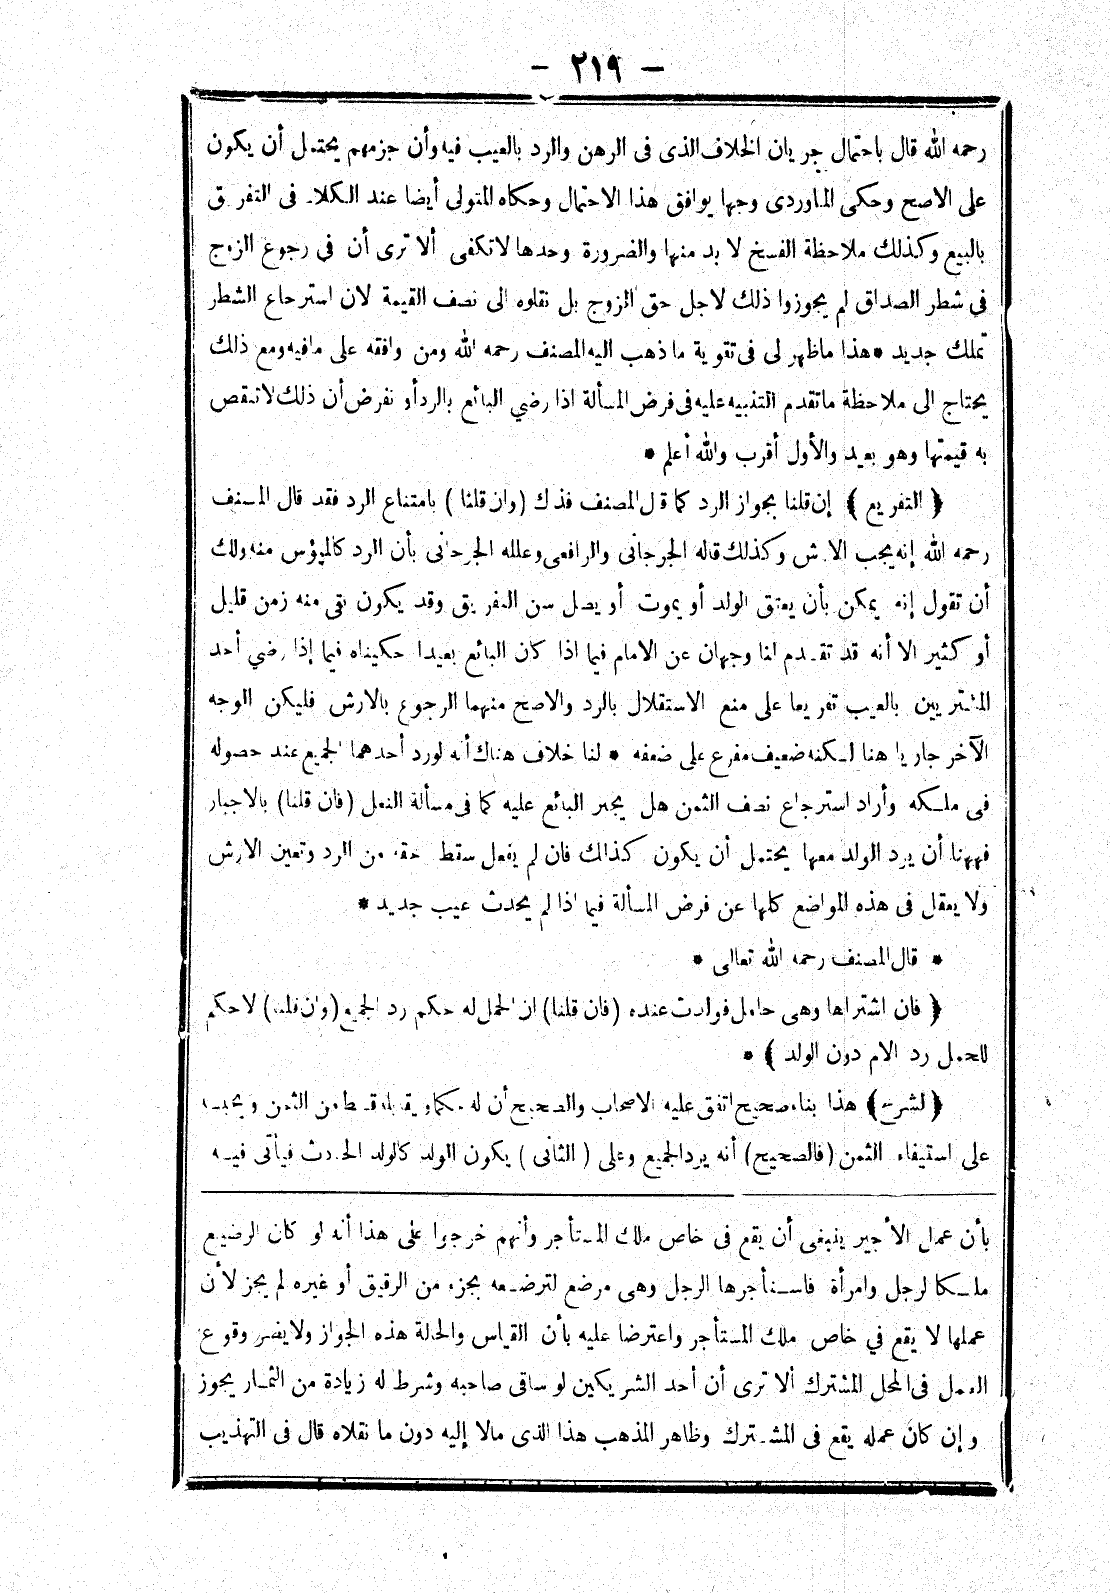 — ٢١٩ —
رحمه الله قال باحتمال جريان الخلاف الذى فى الرهن والرد بالعيب فيه وأن جزمهم يحتمل أن يكون
على الاصح وحكى الماوردى وجها يوافق هذا الاحتمال وحكاه المتولى أيضا عند الكلام فى التفريق
بالبيع وكذلك ملاحظة الفسخ لا بد منها والضرورة وحدها لاتكفى ألا ترى أن في رجوع الزوج
في شطر الصداق لم يجوزوا ذلك لاجل حق الزوج بل نقلوه الى نصف القيمة لان استرجاع الشطر
تملك جديد * هذا ماظهر لى فى تقوية ماذهب اليه المصنف رحمه الله ومن وافقه على مافيه ومع ذلك
يحتاج الى ملاحظة ماتقدم التنبيه عليه فى فرض المسألة اذا رضي البائع بالرد أو نفرض أن ذلك لاتنقص
به قيمتها وهو بعيد والأول أقرب والله أعلم *
﴿ التفريع ﴾ إن قلنا بجواز الرد كما قال المصنف فذاك (وان قلنا) بامتناع الرد فقد قال المصنف
رحمه الله إنه يجب الارش وكذلك قاله الجرجانى والرافعى وعلله الجرجانى بأن الرد كالميؤس منه ولك
أن تقول إنه يمكن بأن يعتق الولد أو يموت أو يصل سن التفريق وقد يكون بقى منه زمن قليل
أو كثير الا أنه قد تقدم لنا وجهان عن الامام فيما اذا كان البائع بعيدا حكيناه فيما إذا رضي أحد
المشتريين بالعيب تفريعا على منع الاستقلال بالرد والاصح منهما الرجوع بالارش فليكن الوجه
الآخر جاريا هنا لكنه ضعيف مفرع على ضعفه * لنا خلاف هناك أنه لو رد أحدهما الجميع عند حصوله
فى ملكه وأراد استرجاع نصف الثمن هل يجبر البائع عليه كما فى مسألة النعل (فان قلنا) بالاجبار
فههنا أن يرد الولد معها يحتمل أن يكون كذلك فان لم يفعل سقط حقه من الرد وتعين الارش
ولا يعقل فى هذه المواضع كلها عن فرض المسألة فيما اذا لم يحدث عيب جديد *
* قال المصنف رحمه الله تعالى *
﴿ فان اشتراها وهى حامل فولدت عنده (فان قلنا) ان الحمل له حكم رد الجميع (وان قلنا) لا حكم
للحمل رد الام دون الولد ﴾ *
﴿ الشرح ﴾ هذا بناء صحيح اتفق عليه الاصحاب والصحيح أن له حكما ويقابله قسط من الثمن ويحبسه
على استيفاء الثمن (فالصحيح) أنه يرد الجميع وعلى (الثانى) يكون الولد كالولد الحادث فيأتى فيه
بأن عمل الأجير ينبغى أن يقع فى خاص ملك المستأجر وأنهم خرجوا على هذا أنه لو كان الرضيع
ملكا لرجل وامرأة فاستأجرها الرجل وهى مرضع لترضعه بجزء من الرقيق أو غيره لم يجز لأن
عملها لا يقع في خاص ملك المستأجر واعترضا عليه بأن القياس والحالة هذه الجواز ولا يضر وقوع
العمل فى المحل المشترك ألا ترى أن أحد الشريكين لو ساقى صاحبه وشرط له زيادة من الثمار يجوز
وإن كان عمله يقع فى المشترك وظاهر المذهب هذا الذى مالا إليه دون ما نقلاه قال فى التهذيب